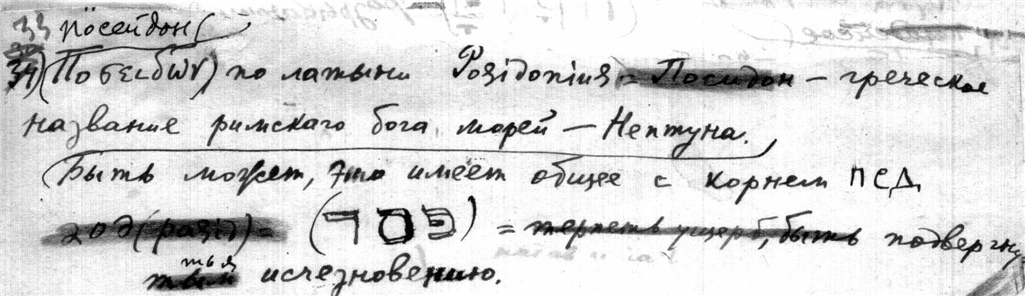 33 Посейдон (
34) (Ποσειδων) по латыни Posidonius = Посидон – греческое
название римскаго бога морей – Нептуна.
(Быть может, это имеет общее с корнем ПСД
(פסד) = терпеть ущерб, быть подвергну-
ться исчезновению.